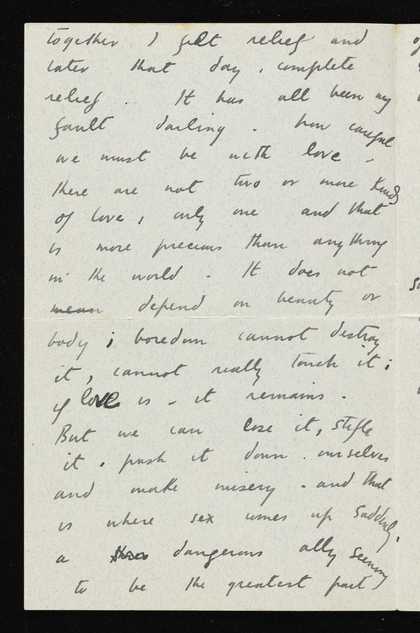 together I felt relief and
later that day, complete
relief. It has all been my
fault darling. how careful
we must be with love –
there are not two or more kinds
of love, only one and that
is more precious than anything
in the world. It does not
mean depend on beauty or
body; boredom cannot destroy
it, cannot really touch it;
if love is – it remains.
But we can lose it, stifle
it. push it down. ourselves
and make misery. and that
is where sex comes up suddenly,
a dangerous ally seeming
to be the greatest part